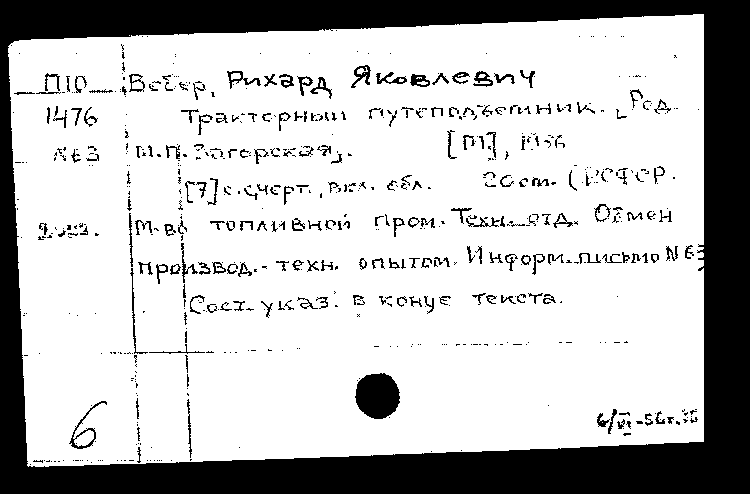 П10 Вебер, Рихард Яковлевич
1476 Тракторный путеподъемник. [Ред.
№63 М.П. Загорская].   [М], 1956
[7] с. с черт., вкл. обл.   20 см. (РСФСР.
М-во топливной пром. Техн. отд. Обмен
производ.-техн. опытом. Информ. письмо №63)
Сост. указ. в конце текста.
6
6/VI-56г.